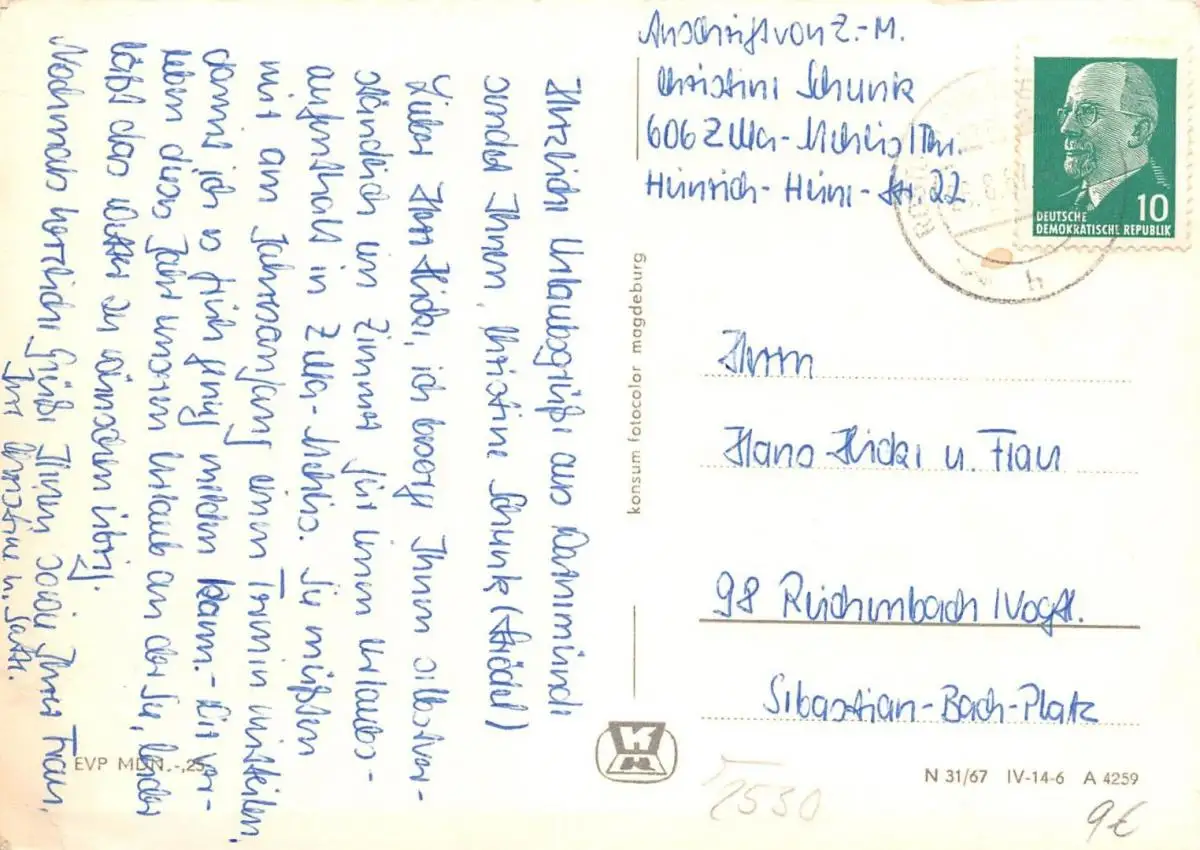 Anschrift von Z.-M.
Christine Schunk
606 Zella-Mehlis/Thr.
Heinrich-Heine-Str. 22
DEUTSCHE
DEMOKRATISCHE REPUBLIK
10
Herrn
Hans Hicke u. Frau
98 Reichenbach/Vogtl.
Sebastian-Bach-Platz
Herzliche Urlaubsgrüße aus Warnemünde
sendet Ihnen, Christine Schunk
Lieber Herr Hicke, ich besorge Ihnen selbstver-
ständlich ein Zimmer für einen Urlaubs-
aufenthalt in Zella-Mehlis. Sie müßten
mir am Jahresanfang einen Termin mitteilen,
damit ich es früh genug melden kann.- Wir ver-
leben dieses Jahr unseren Urlaub an der See, leider
läßt das Wetter zu wünschen übrig.
Nochmals herzliche Grüße Ihnen sowie Ihrer Frau,
Ihre Christine u. Gatte.
konsum fotocolor magdeburg
EVP MDN.-,25
N 31/67 IV-14-6 A 4259
2530
9€